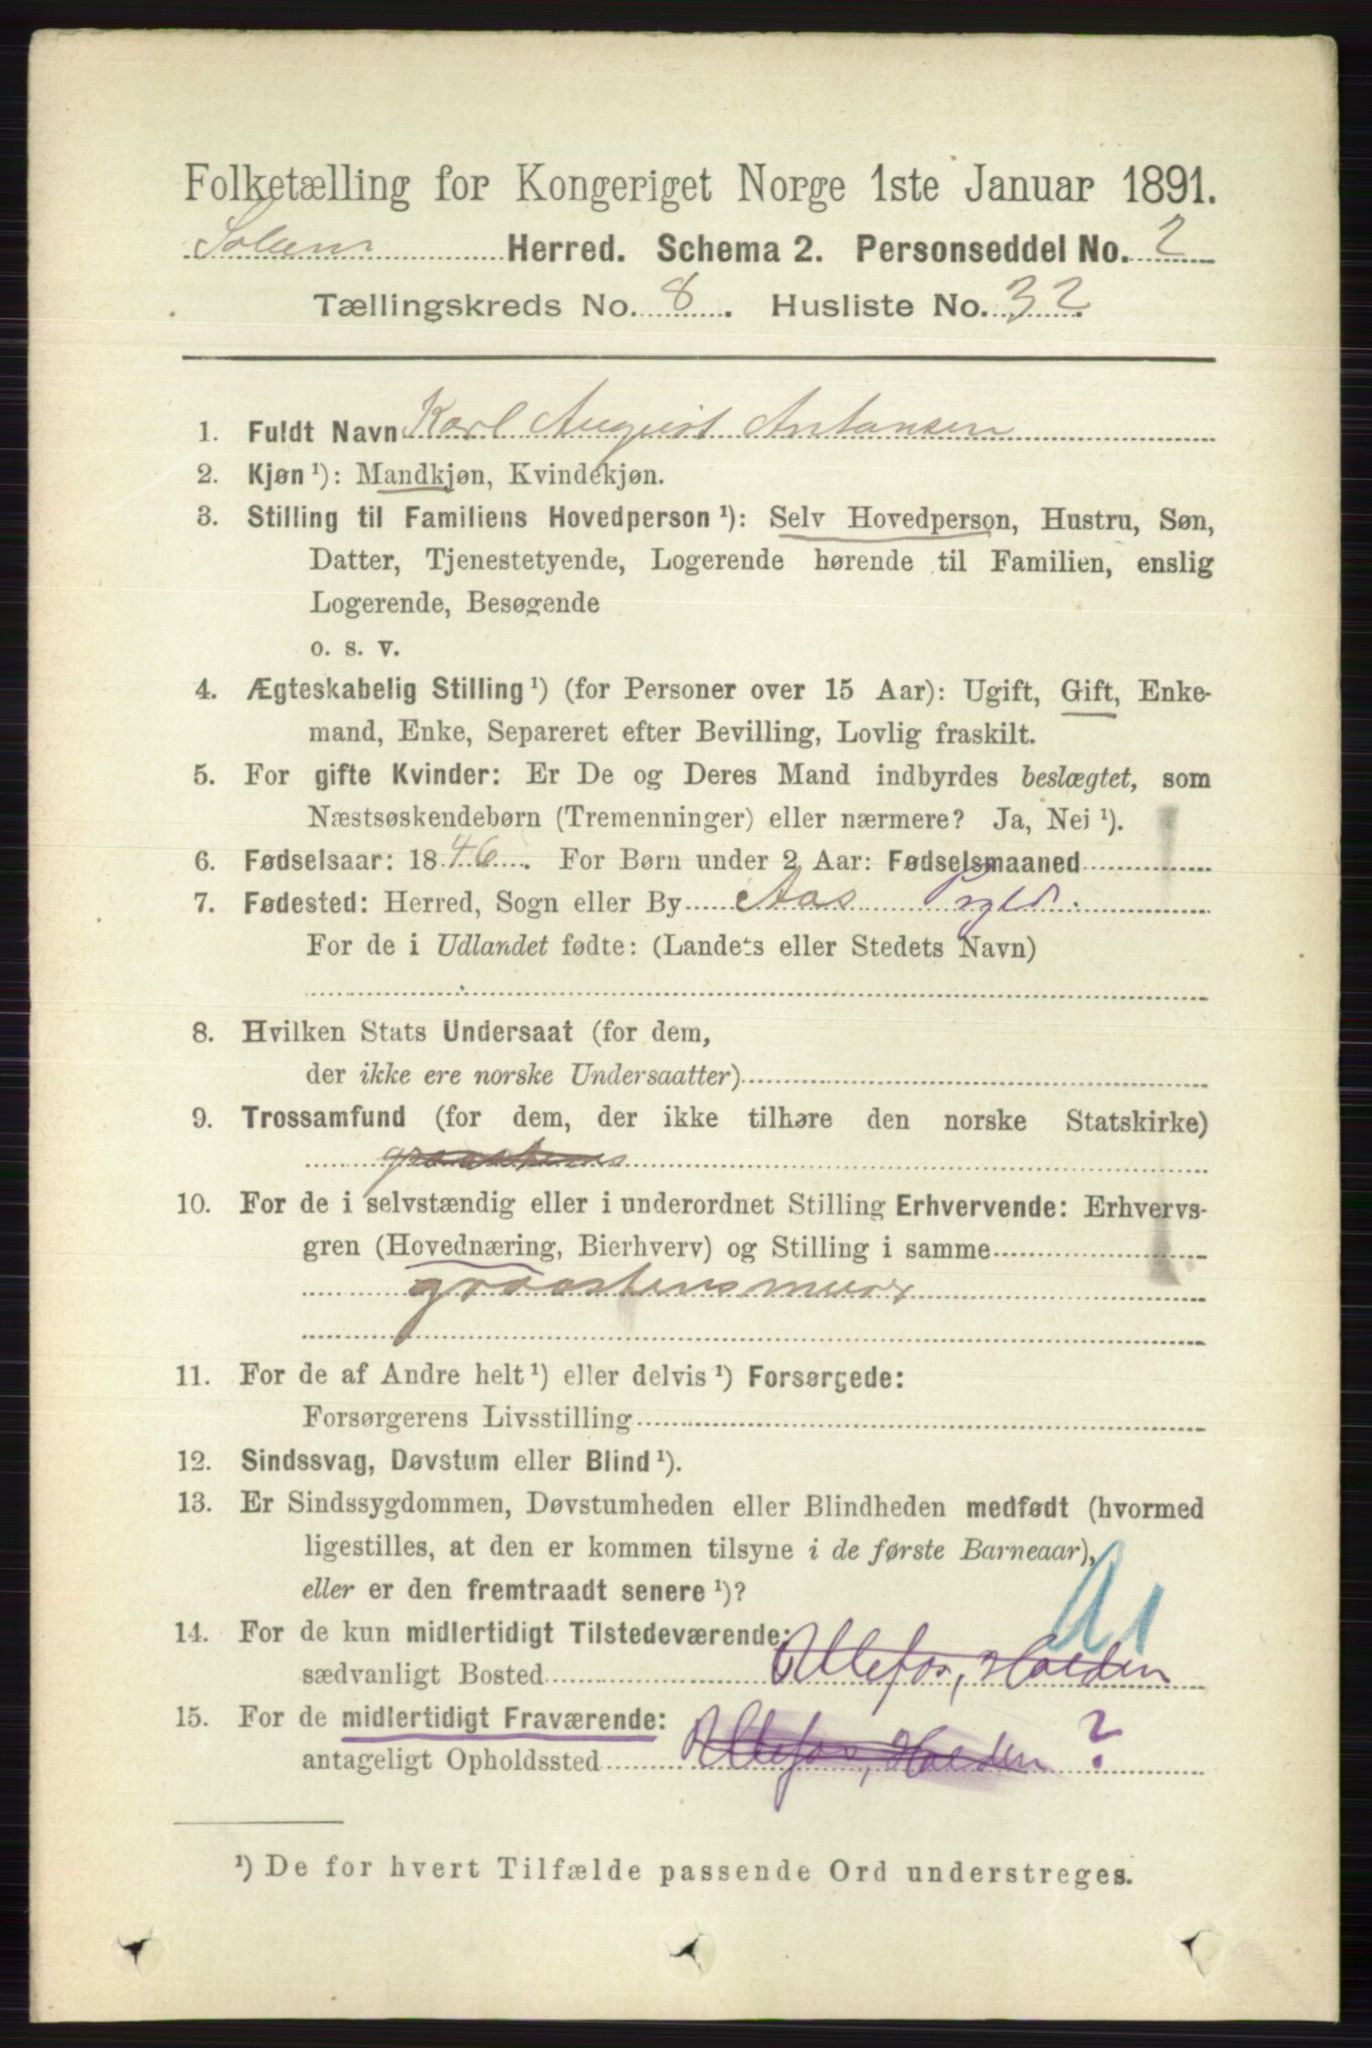 Folketælling for Kongeriget Norge 1ste Januar 1891.
Solum Herred. Schema 2. Personseddel No. 2
Tællingskreds No. 8. Husliste No. 32.
1. Fuldt Navn Karl August Antonsen
2. Kjøn ¹): Mandkjøn, Kvindekjøn.
3. Stilling til Familiens Hovedperson ¹): Selv Hovedperson, Hustru, Søn,
Datter, Tjenestetyende, Logerende hørende til Familien, enslig
Logerende, Besøgende
o. s. v.
4. Ægteskabelig Stilling ¹) (for Personer over 15 Aar): Ugift, Gift, Enke-
mand, Enke, Separeret efter Bevilling, Lovlig fraskilt.
5. For gifte Kvinder: Er De og Deres Mand indbyrdes beslægtet, som
Næstsøskendebørn (Tremenninger) eller nærmere? Ja, Nei ¹).
6. Fødselsaar: 1846. For Børn under 2 Aar: Fødselsmaaned
7. Fødested: Herred, Sogn eller By Aas
For de i Udlandet fødte: (Landets eller Stedets Navn)
8. Hvilken Stats Undersaat (for dem,
der ikke ere norske Undersaatter)
9. Trossamfund (for dem, der ikke tilhøre den norske Statskirke)
graastens
10. For de i selvstændig eller i underordnet Stilling Erhvervende: Erhvervs-
gren (Hovednæring, Bierhverv) og Stilling i samme
graastensmurer
11. For de af Andre helt ¹) eller delvis ¹) Forsørgede:
Forsørgerens Livsstilling
12. Sindssvag, Døvstum eller Blind ¹).
13. Er Sindssygdommen, Døvstumheden eller Blindheden medfødt (hvormed
ligestilles, at den er kommen tilsyne i de første Barneaar),
eller er den fremtraadt senere ¹)?
14. For de kun midlertidigt Tilstedeværende:
sædvanligt Bosted Ulefos, Holden
15. For de midlertidigt Fraværende:
antageligt Opholdssted Ulefos, Holden ?
¹) De for hvert Tilfælde passende Ord understreges.